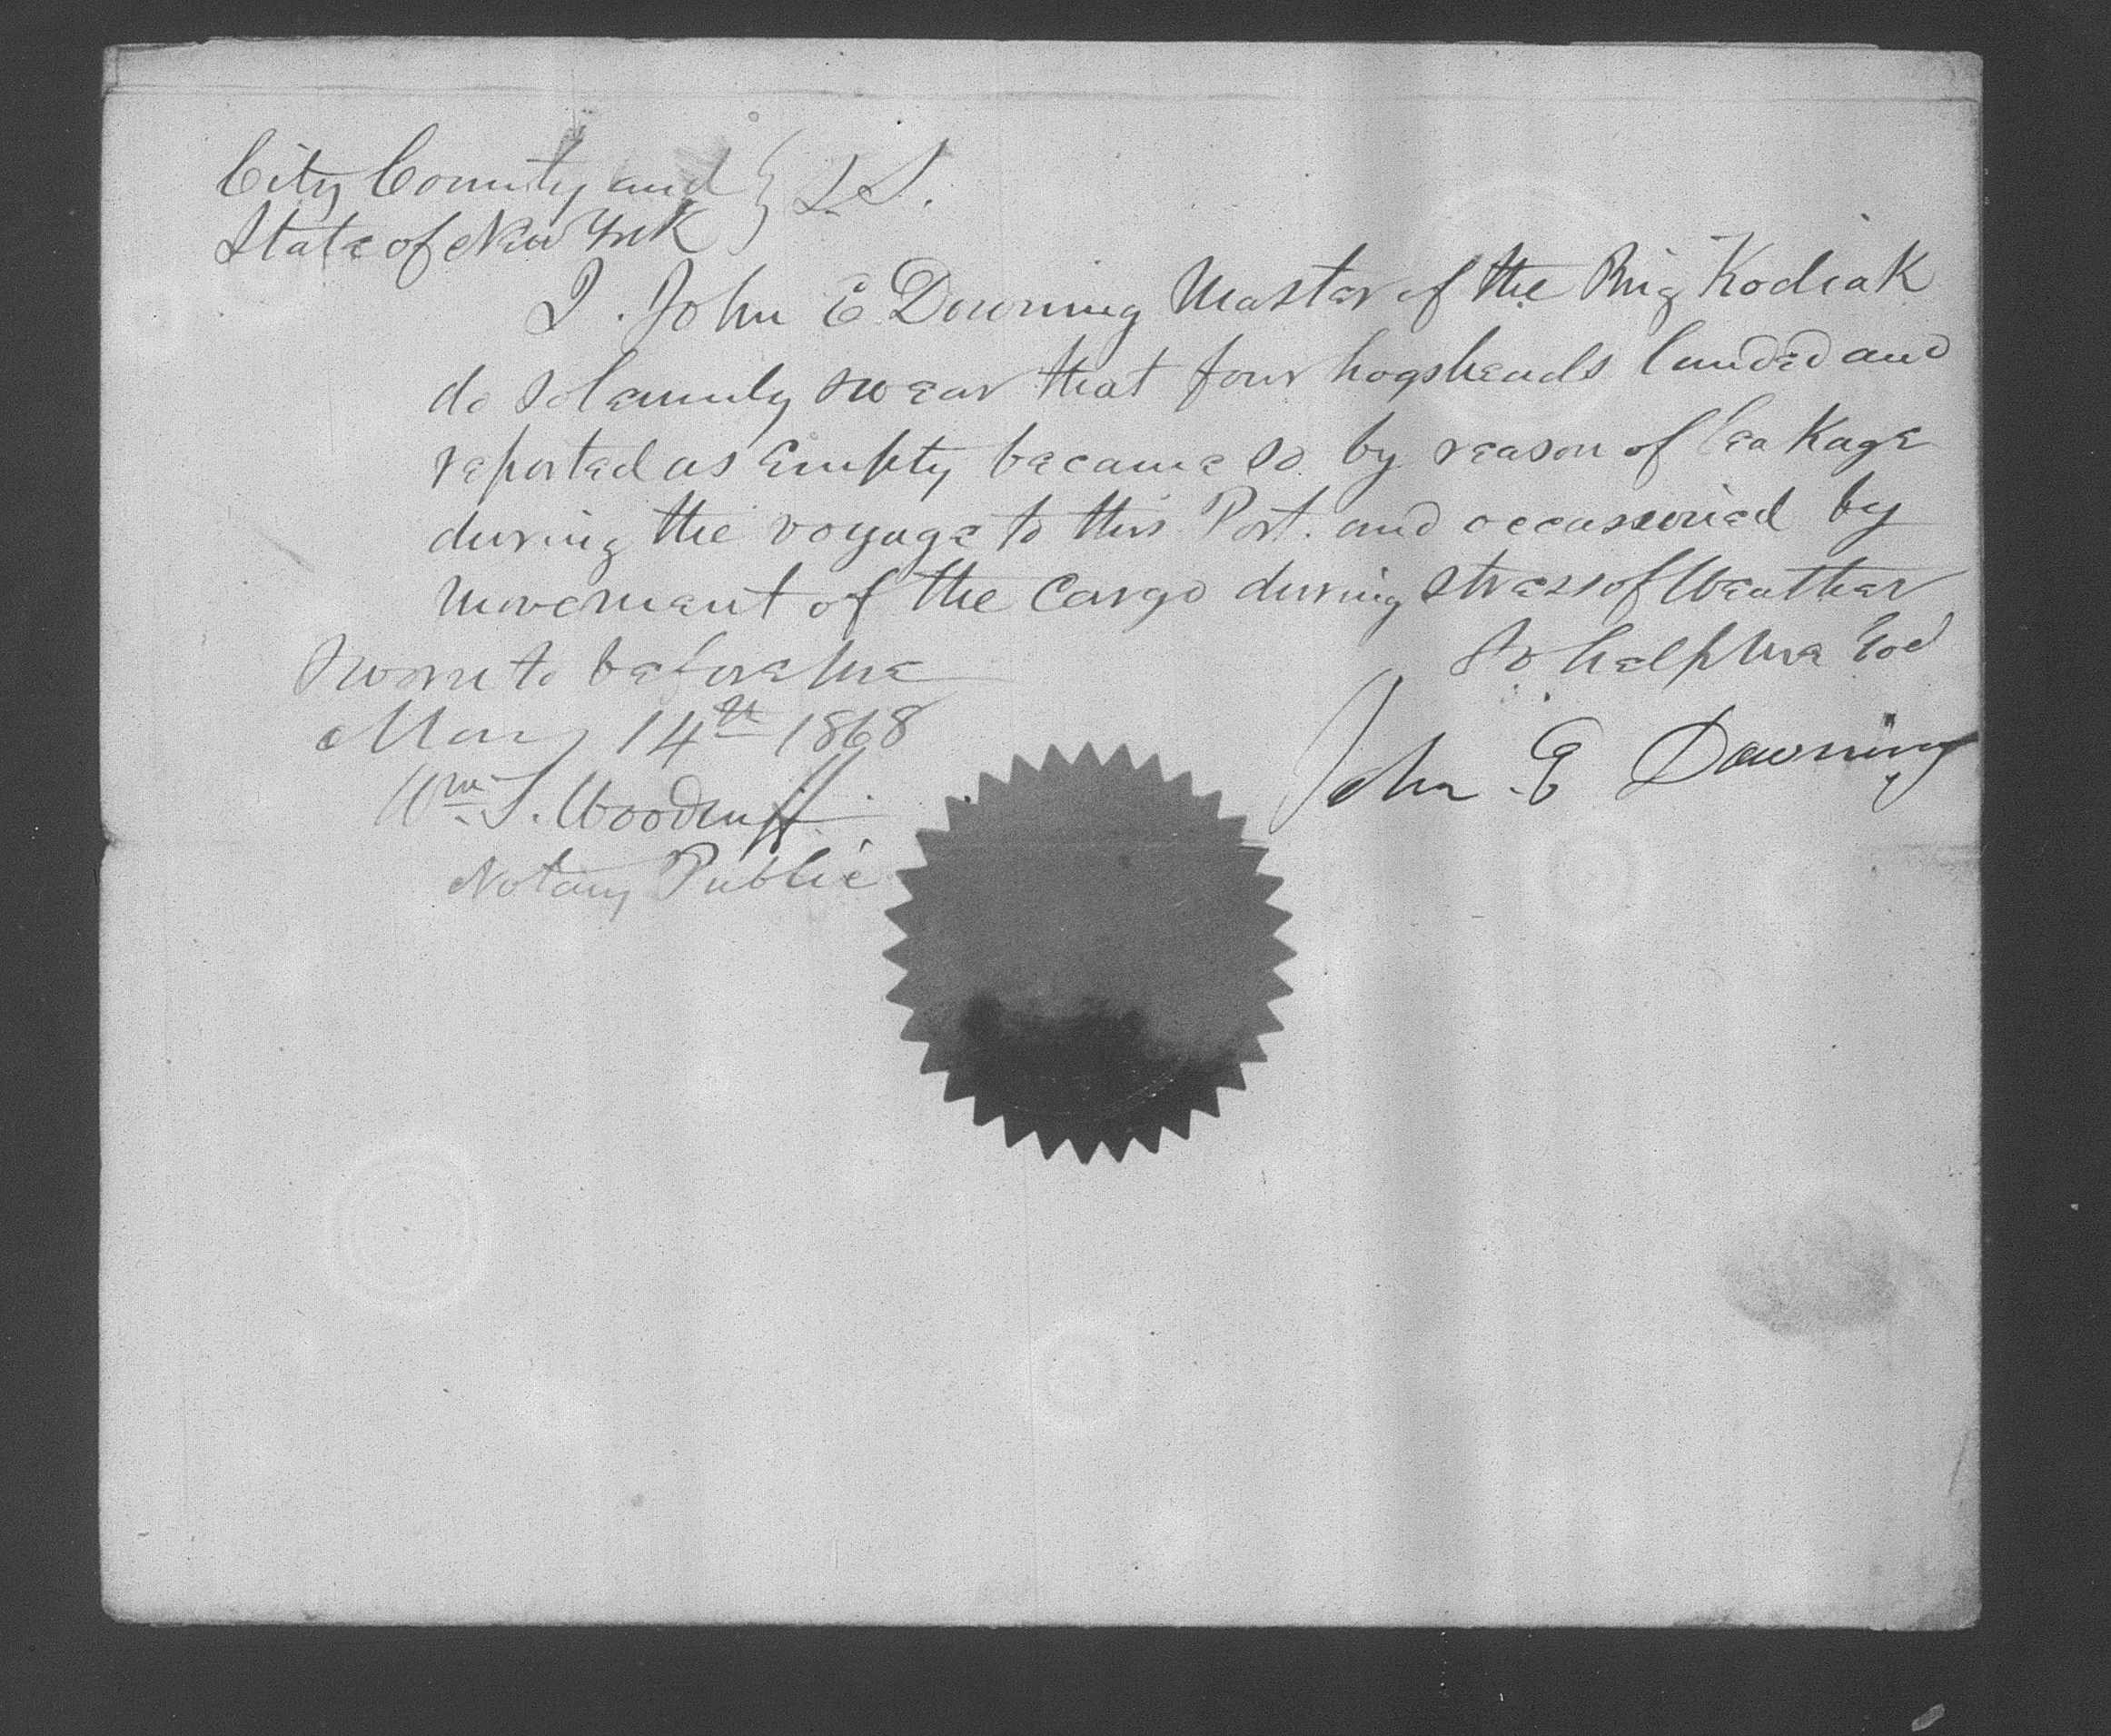 City County and } S.S.
State of New York }
I. John E. Downing Master of the Brig Kodiak
do solemnly swear that four hogsheads landed and
reported as Empty became so by reason of leakage
during the voyage to this Port. and occasioned by
movement of the Cargo during stress of Weather
So help me God
Sworn to before me
May 14th 1868
John E Downing
Wm S. Woodruff
Notary Public